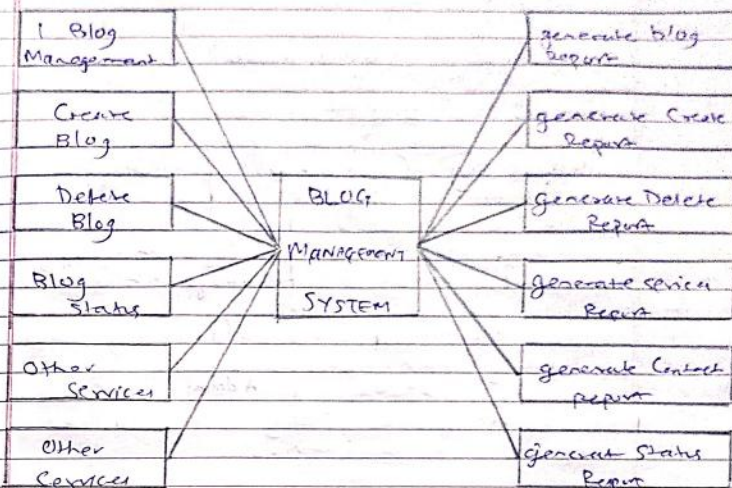 1 Blog
Management
Create
Blog
Delete
Blog
Blog
Status
Other
Services
Other
Services
BLOG
MANAGEMENT
SYSTEM
generate blog
Report
generate Create
Report
generate Delete
Report
generate service
Report
generate Contact
report
generat Status
Report